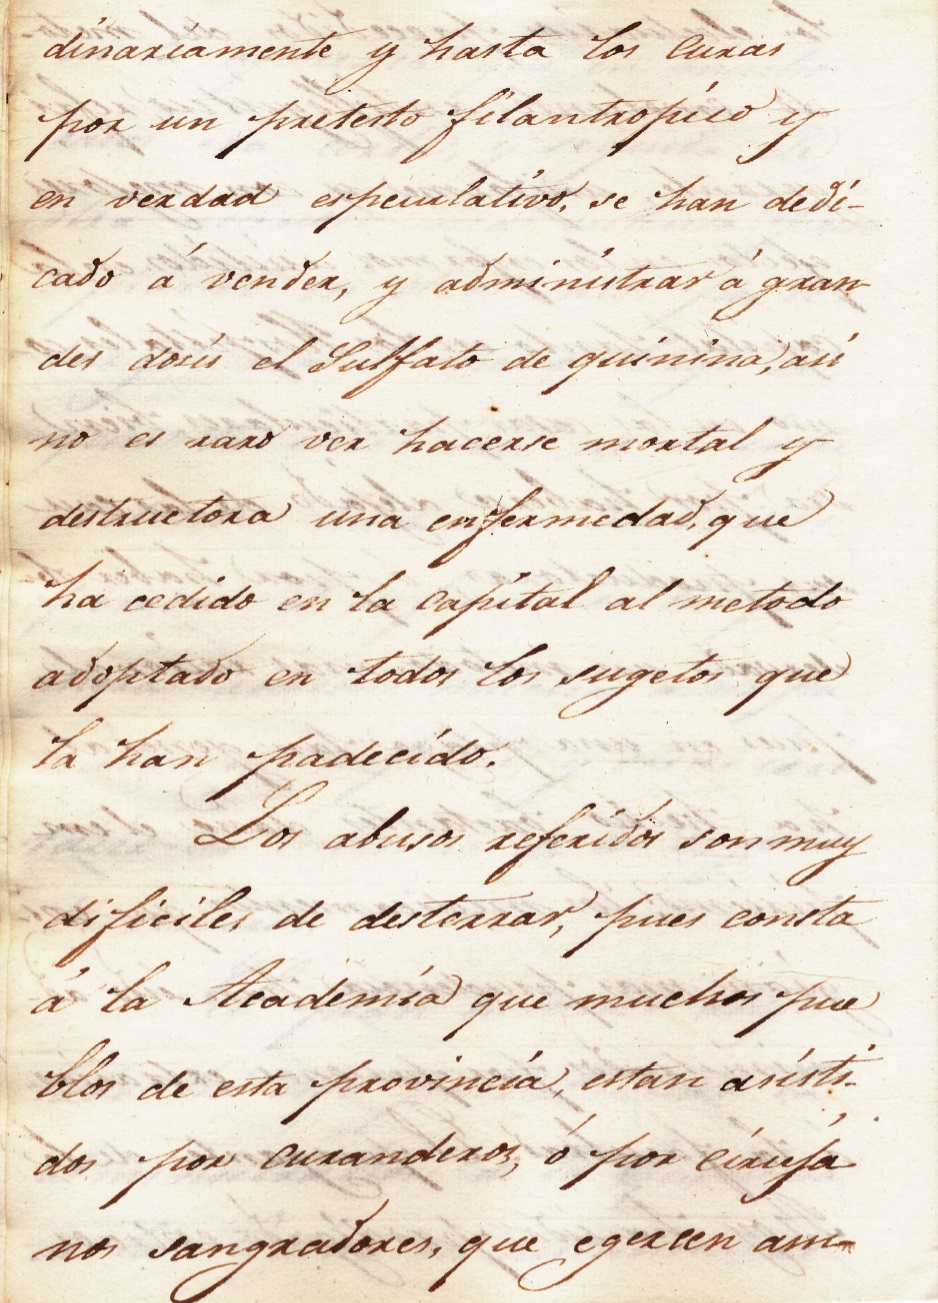 dinariamente y hasta los curas
por un pretesto filantropico y
en verdad especulativo, se han dedi-
cado á vender, y administrar á gran-
des dosis el Sulfato de quinina, asi
no es raro ver hacerse mortal y
destructora una enfermedad, que
ha cedido en la capital al metodo
adoptado en todos los sugetos que
la han padecido.
Los abusos referidos son muy
dificiles de desterrar, pues consta
á la Academia que muchos pue
blos de esta provincia, estan asisti-
dos por curanderos, ó por ciruja
nos sangradores, que egercen am-